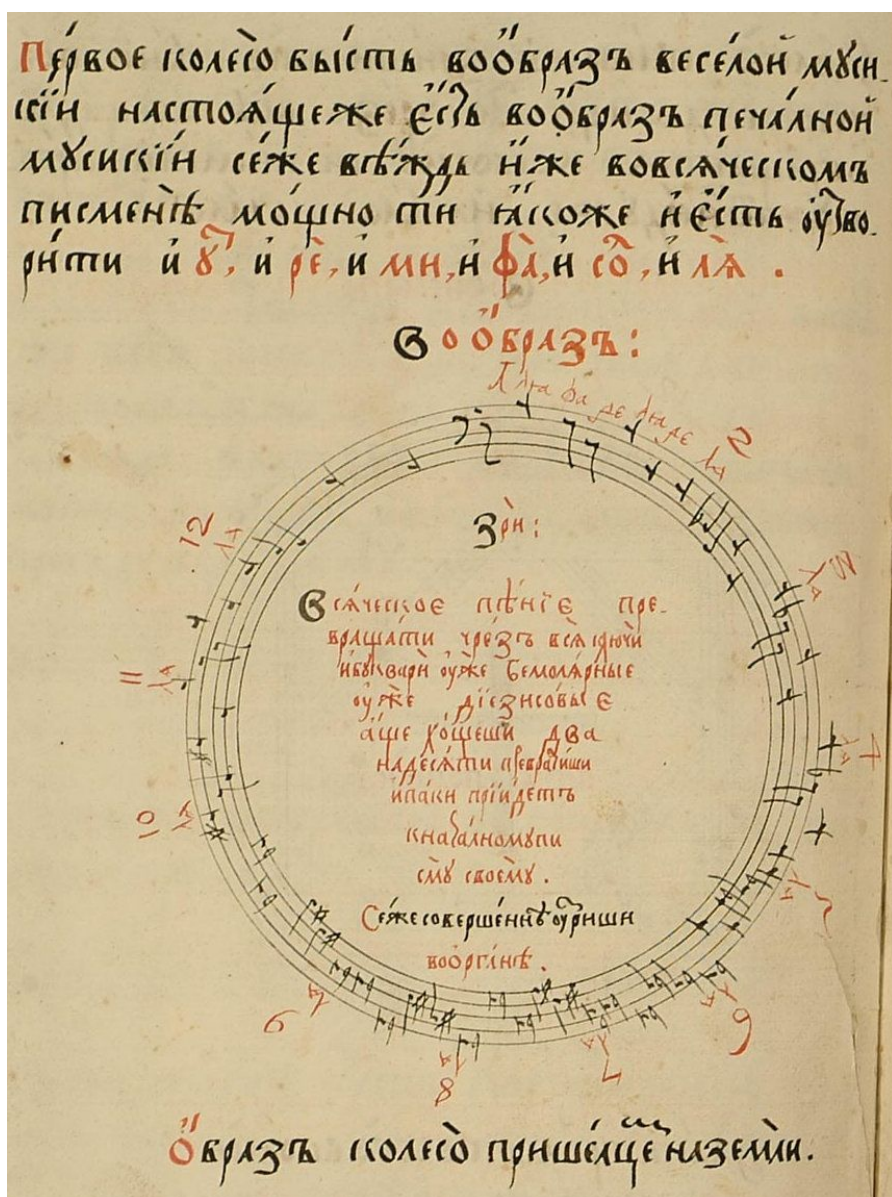 Пе́рвое колесо̀ бы́сть воѻ́бразъ весе́лой муси-
кїи настоѧ́щеже є҆сть воѻ́бразъ печа́лной
мусикїи се́же всѣ́ждь и҆́же вовсѧ́ческомъ
писменѣ мо́щно ти ꙗ҆́коже и҆ є҆́сть оу҆тво-
ри́ти и҆ у҆т, и҆ рѐ, и҆ ми, и҆ фа̀, и҆ со̀л, и҆ лѧ̀.
Воѻ́бразъ:
2
3
4
6
7
8
9
10
11
12
Зрѝ:
Всѧ́ческое пѣ́нїе пре-
враща́ти чре́зъ всѧ̀ ключѝ
и҆буквари оу҆́же бемолѧ́рные
оу҆́же дїезисо́вые
а҆́ще хо́щеши два
на́десѧти преврати́ши
и҆па́ки прїи́детъ
кнача́лномупи
смꙋ̀ своемꙋ̀.
Се́же соверше́ннѣ оу҆́зриши
воѻрга́нѣ.
Ѻ҆́бразъ колесо̀ прише́лще наземлѝ.